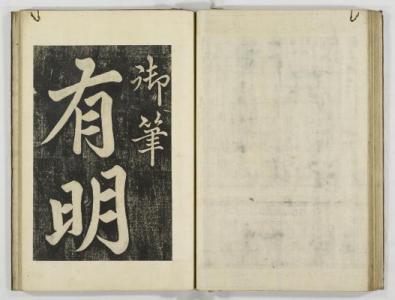 御筆
有明